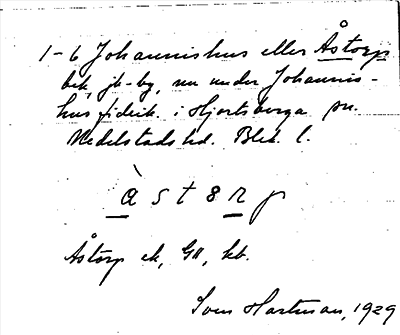 1-6 Johannishus eller Åstorp
bek, jb-by, nu under Johannis-
hus fideik. i Hjortsberga sn.
Medelstads hd. Blek. l.
àst8rp
Åstorp ek, GK, kb.
Sven Hartman, 1929